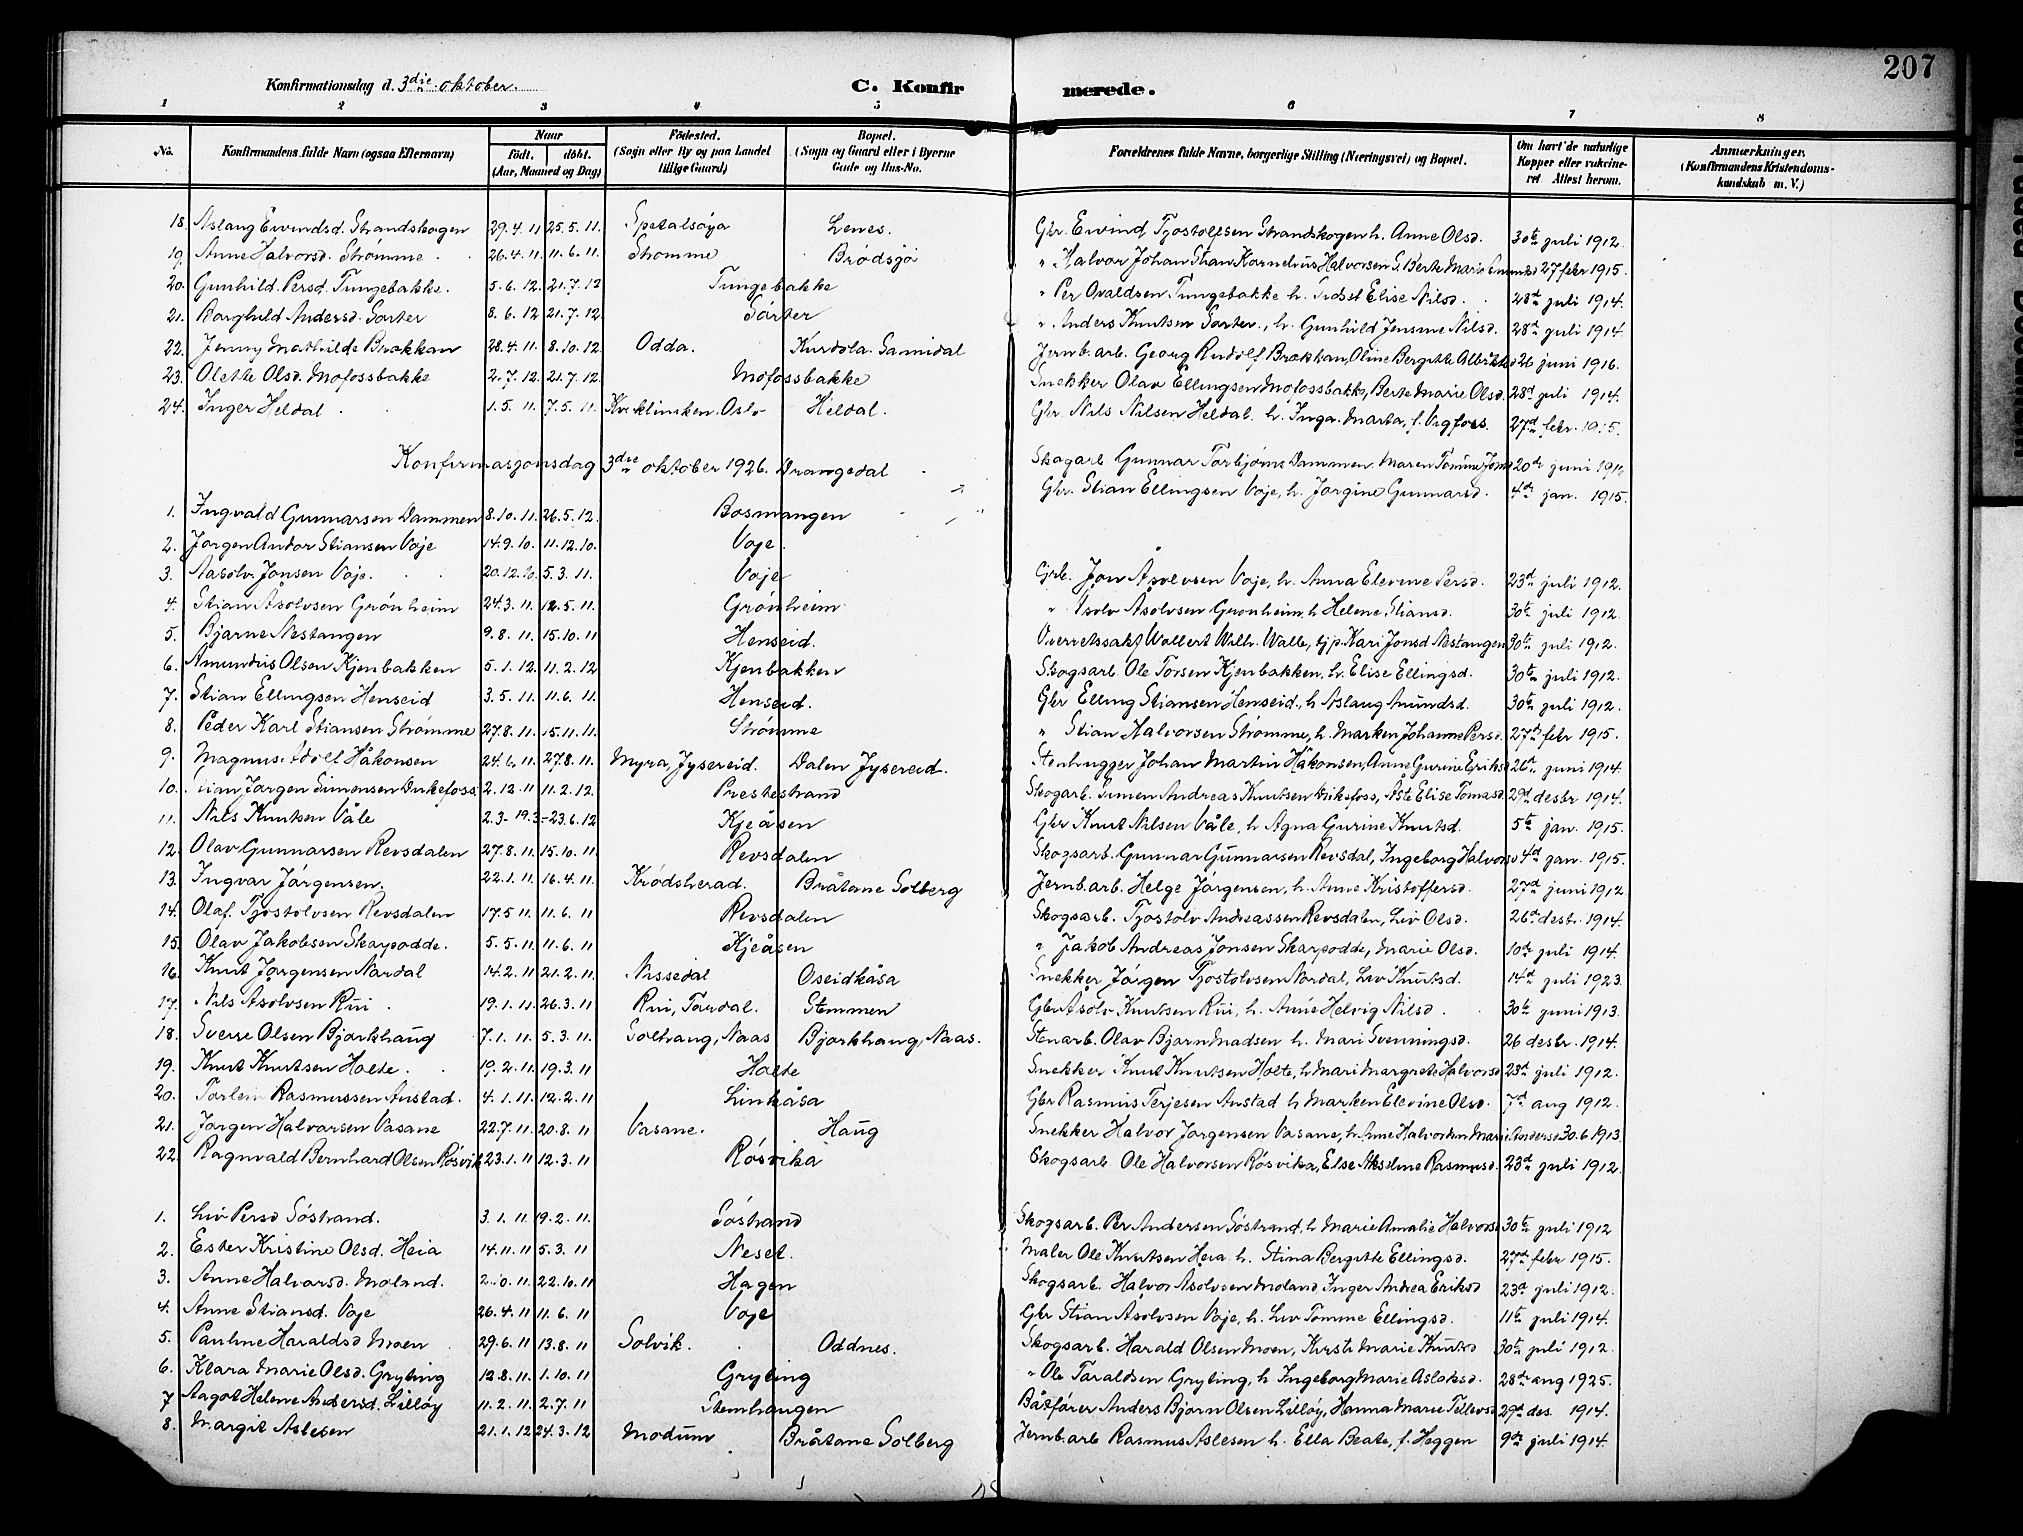 207
Konfirmationsdag d. 3die oktober.
C. Konfirmerede.
1 2 3 4 5 6 7 8
No. Konfirmandens fulde Navn (ogsaa Efternavn) Naar født. døbt. (Aar, Maaned og Dag) Fødested. (Sogn eller By og paa Landet tillige Gaard) Bopæl. (Sogn og Gaard eller i Byerne Gade og Hus-No. Forældrenes fulde Navne, borgerlige Stilling (Næringsvei) og Bopæl. Om havt de naturlige Kopper eller vakcineret Attest herom. Anmærkninger. (Konfirmandens Kristendomskundskab m. V.)
18. Aslaug Eivindsd. Strandskogen 29.4.11 25.5.11. Spetalsøya Lenes. Gbr. Eivind Tjostolfsen Strandskogen h. Anne Olsd. 30te juli 1912.
19. Anne Halvorsd. Strømme 26.4.11. 11.6.11. Strømme Brødsjø " Halvor Johan Stian Kornelius Halvorsen S. Berte Marie 27 febr 1915.
20. Gunhild Persd. Tungebakke. 5.6.12. 21.7.12 Tungebakke " Per Ovaldsen Tungebakke h. Elise Nilsd. 28de juli 1914.
21. Borghild Andersd. Sorter 8.6.12 21.7.12 Sørter " Anders Knutsen Sorter, h. Gunhild Jensine Nilsd. 28de juli 1914
22. Jenny Mathilde Brokkan 28.4.11. 8.10.12 Odda. Kurdøla. Sannidal Jernb.arb. Georg Rudolf Brokkan, Oline Bergitte 26 juni 1916.
23. Olette Olsd. Mofossbakke 2.7.12. 21.7.12. Mofossbakke Snekker Olav Ellingsen Mofossbakk, Berte Marie Olsd. 28d juli 1914.
24. Inger Heldal 1.5.11. 7.5.11. Kv.klinikken, Oslo Heldal. Gbr. Nils Nilsen Heldal. h. Inga Marta, f. Vigfoss. 27d febr. 1915.
Konfirmasjonsdag 3die oktober 1926. Drangedal
1. Ingvald Gunnarsen Dammen 8.10.11. 26.5.12. Bosmangen Skogarb. Gunnar Torbjørns Dammen. Maren Tomine 20de juni 1912
2. Jørgen Andor Stiansen Voje 14.9.10. 11.12.10. Voje. Gbr. Stian Ellingsen Voje, h. Jørgine Gunnarsd. 4d jan. 1915.
3. Aasolv Jonsen Voje. 20.12.10. 5.3.11. Voje Gbr. Jon Åsolvsen Voje, h. Anna Elevine Persd. 23d juli 1912.
4. Stian Åsolvsen Grønheim 24.3.11. 12.5.11. Grønheim " Åsolv Åsolvsen Grønheim, h. Helene Stiansd. 30te juli 1912.
5. Bjarne Nestangen 9.8.11. 15.10.11 Henseid. Overretssakf. Wollert Wilh. Walle, tjp. Kari Jonsd Nestangen 30te juli 1912.
6. Amundus Olsen Kjenbakken 5.1.12. 11.2.12 Kjenbakken Skogsarb. Ole Torsen Kjenbakken, h. Elise Ellingsd. 30te juli 1912.
7. Stian Ellingsen Henseid 3.5.11. 11.6.11. Henseid. Gbr Elling Stiansen Henseid., h Aslaug Anundsd. 30te juli 1912.
8. Peder Karl Stiansen Strømme 27.8.11. 15.11.11. Strømme " Stian Halvorsen Strømme, h. Marken Johanne Persd. 27de febr 1915.
9. Magnus Adolf Håkonsen 24.6.11. 27.8.11. Myra, Jysereid. Dalen Jysereid. Stenhugger Johan Martin Håkonsen, Anne Gurine Eriksd 26de juni 1914.
10. Jørgen Simonsen Dukefoss 2.12.11 11.2.12. Prestestrand Skogarb. Simen Andreas Knutsen Dukefoss, Åste Elise Tomasd 29d desbr 1914.
11. Nils Knutsen Våle 2.3- 19.3.-23.6.12 Kjeåsen Gbr Knut Nilsen Våle, h Agna Gurine Knutsd. 5te jan. 1915.
12. Olav Gunnarsen Revsdalen 27.8.11. 15.10.11. Revsdalen Skogsarb. Gunnar Gunnarsen Revsdal, Ingeborg Halvorsd 4d jan. 1915.
13. Ingvar Jørgensen. 22.1.11. 16.4.11. Krødsherad. Bråtane Solberg Jernb.arb. Helge Jørgensen, h. Anne Kristoffersd. 27d juni 1912
14. Olaf. Tjostolvsen Revsdalen 17.5.11. 11.6.11 Revsdalen Skogsarb. Tjostolv Andreassen Revsdalen, Liv Olsd. 26de desbr. 1914.
15. Olav Jakobsen Skarpodde. 5.5.11. 11.6.11 Kjeåsen " Jakob Andreas Jonsen Skarpodde, Marie Olsd. 10de juli 1914.
16. Knut Jørgensen Nordal 14.2.11 21.2.11. Nissedal Oseidkåsa Snekker Jørgen Tjostolvsen Nordal, Liv Knutsd. 14d juli 1923.
17. Nils Åsolvsen Rui. 19.1.11. 26.3.11 Rui, Tørdal. Stemmen Gbr Åsolv Knutsen Rui, h. Anne Helvig Nilsd. 30te juni 1913.
18. Sverre Olsen Bjørkhaug 7.1.11. 5.3.11. Solhaug, Naas Bjørkhaug, Naas. Stenarb. Olav Bjørn Madsen h. Mari Svenningsd. 26 desbr. 1914.
19. Knut Knutsen Holte. 19.2.11. 19.3.11 Holte Snekker Knut Knutsen Holte, h Mari Margrete Halvorsd 23de juli 1912.
20. Torleiv Rasmussen Austad. 4.1.11. 12.2.11 Linkåsa Gbr Rasmus Terjesen Austad h Marken Elevine Olsd. 7d aug 1912.
21. Jørgen Halvorsen Vasane 22.7.11. 20.8.11 Vasane. Haug Snekker Halvor Jørgensen Vasane, h. Anne Andersd 30.6.1913.
22. Ragnvald Bernhard Olsen Røsvik 23.1.11 12.3.11 Røsvika Skogsarb Ole Halvorsen Røsvika, Else Akseline Rasmusd. 23d juli 1912.
1. Liv Persd Søstrand. 3.1.11. 19.2.11. Søstrand Skogsarb. Per Andersen Søstrand, h Marie Amalie Halvorsd 30te juli 1912
2. Ester Kristine Olsd. Heia 14.11.11 5.3.11 Neset. Maler Ole Knutsen Heia h. Stina Bergitte Ellingsd. 27de febr 1915.
3. Anne Halvorsd. Moland. 2.10.11. 22.10.11 Hagen Skogsarb. Halvor Åsolvsen Moland Inger Andrea Eriksd 23d juli 1912.
4. Anne Stiansd. Voje 26.4.11 11.6.11 Voje Gbr Stian Åsolvsen Voje, h. Liv Tomme Ellingsd. 11te juli 1914.
5. Pauline Haraldsd Moen 29.6.11 13.8.11 Solvik. Oddnes. Skogsarb. Harald Olsen Moen, Kirsti Marie Knutsd 30te juli 1912.
6. Klara Marie Olsd. Gryting 12.8.11. 1.10.11 Gryting " Ole Taraldsen Gryting, h Ingeborg Marie Aslaksd. 28de aug 1925.
7 Aagot Helene Andersd. Lilløy 11.2.11. 2.7.11 Stemhaugen Båtfører Anders Bjørn Olsen Lilløy, Hanna Marie Tellevsd 29d des. 1914.
8. Margit Aslesen 21.1.12 24.3.12 Modum Bråtane Solberg Jernb.arb Rasmus Aslesen h. Ella Beate, f. Heggen 9de juli 1914.